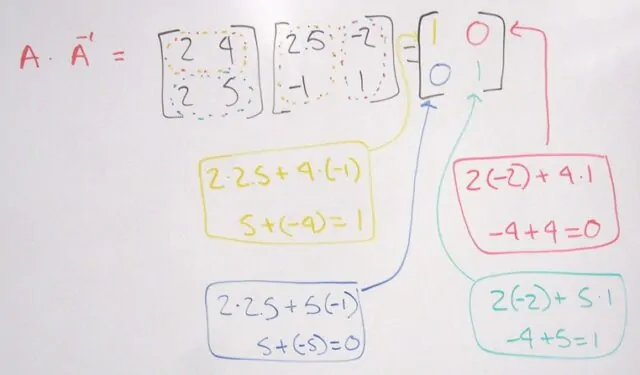 A · A⁻¹ = [2 4] [2.5 -2] = [1 0]
[2 5] [-1 1] [0 1]
2·2.5+4·(-1)
5+(-4)=1
2(-2)+4·1
-4+4=0
2·2.5+5(-1)
5+(-5)=0
2(-2)+5·1
-4+5=1